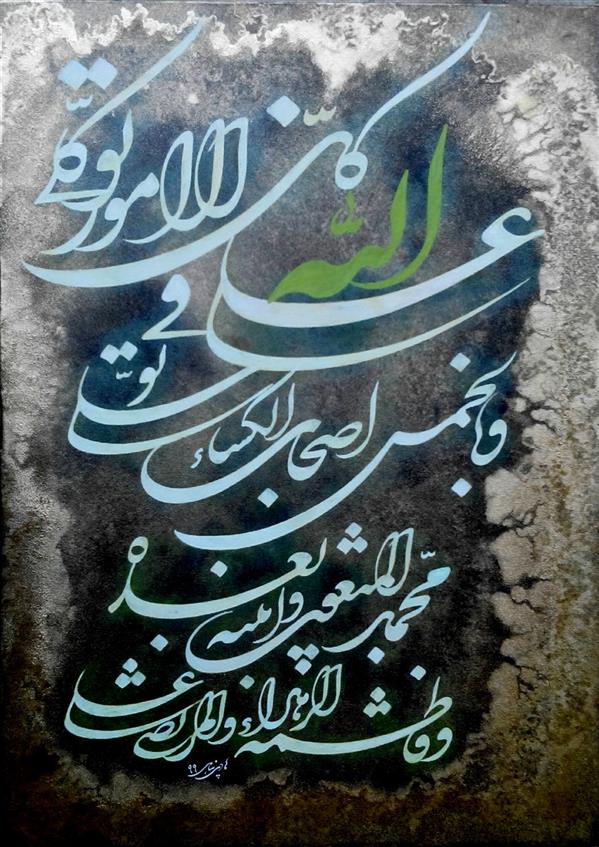 علی الله فی کلّ الامور توکّلی
وبالخمس اصحاب الکساء توسّلی
محمّد المبعوث وابنیه بعده
وفاطمه الزهراء والمرتضی علی
۹۹